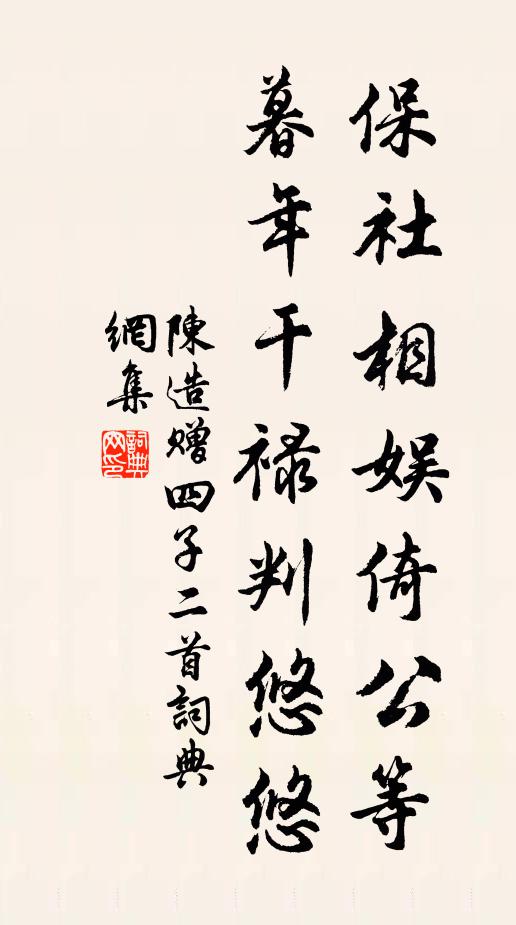 保社相娱倚公等
暮年干禄判悠悠
陳造赠四子二首詞典
網集
詞典網印